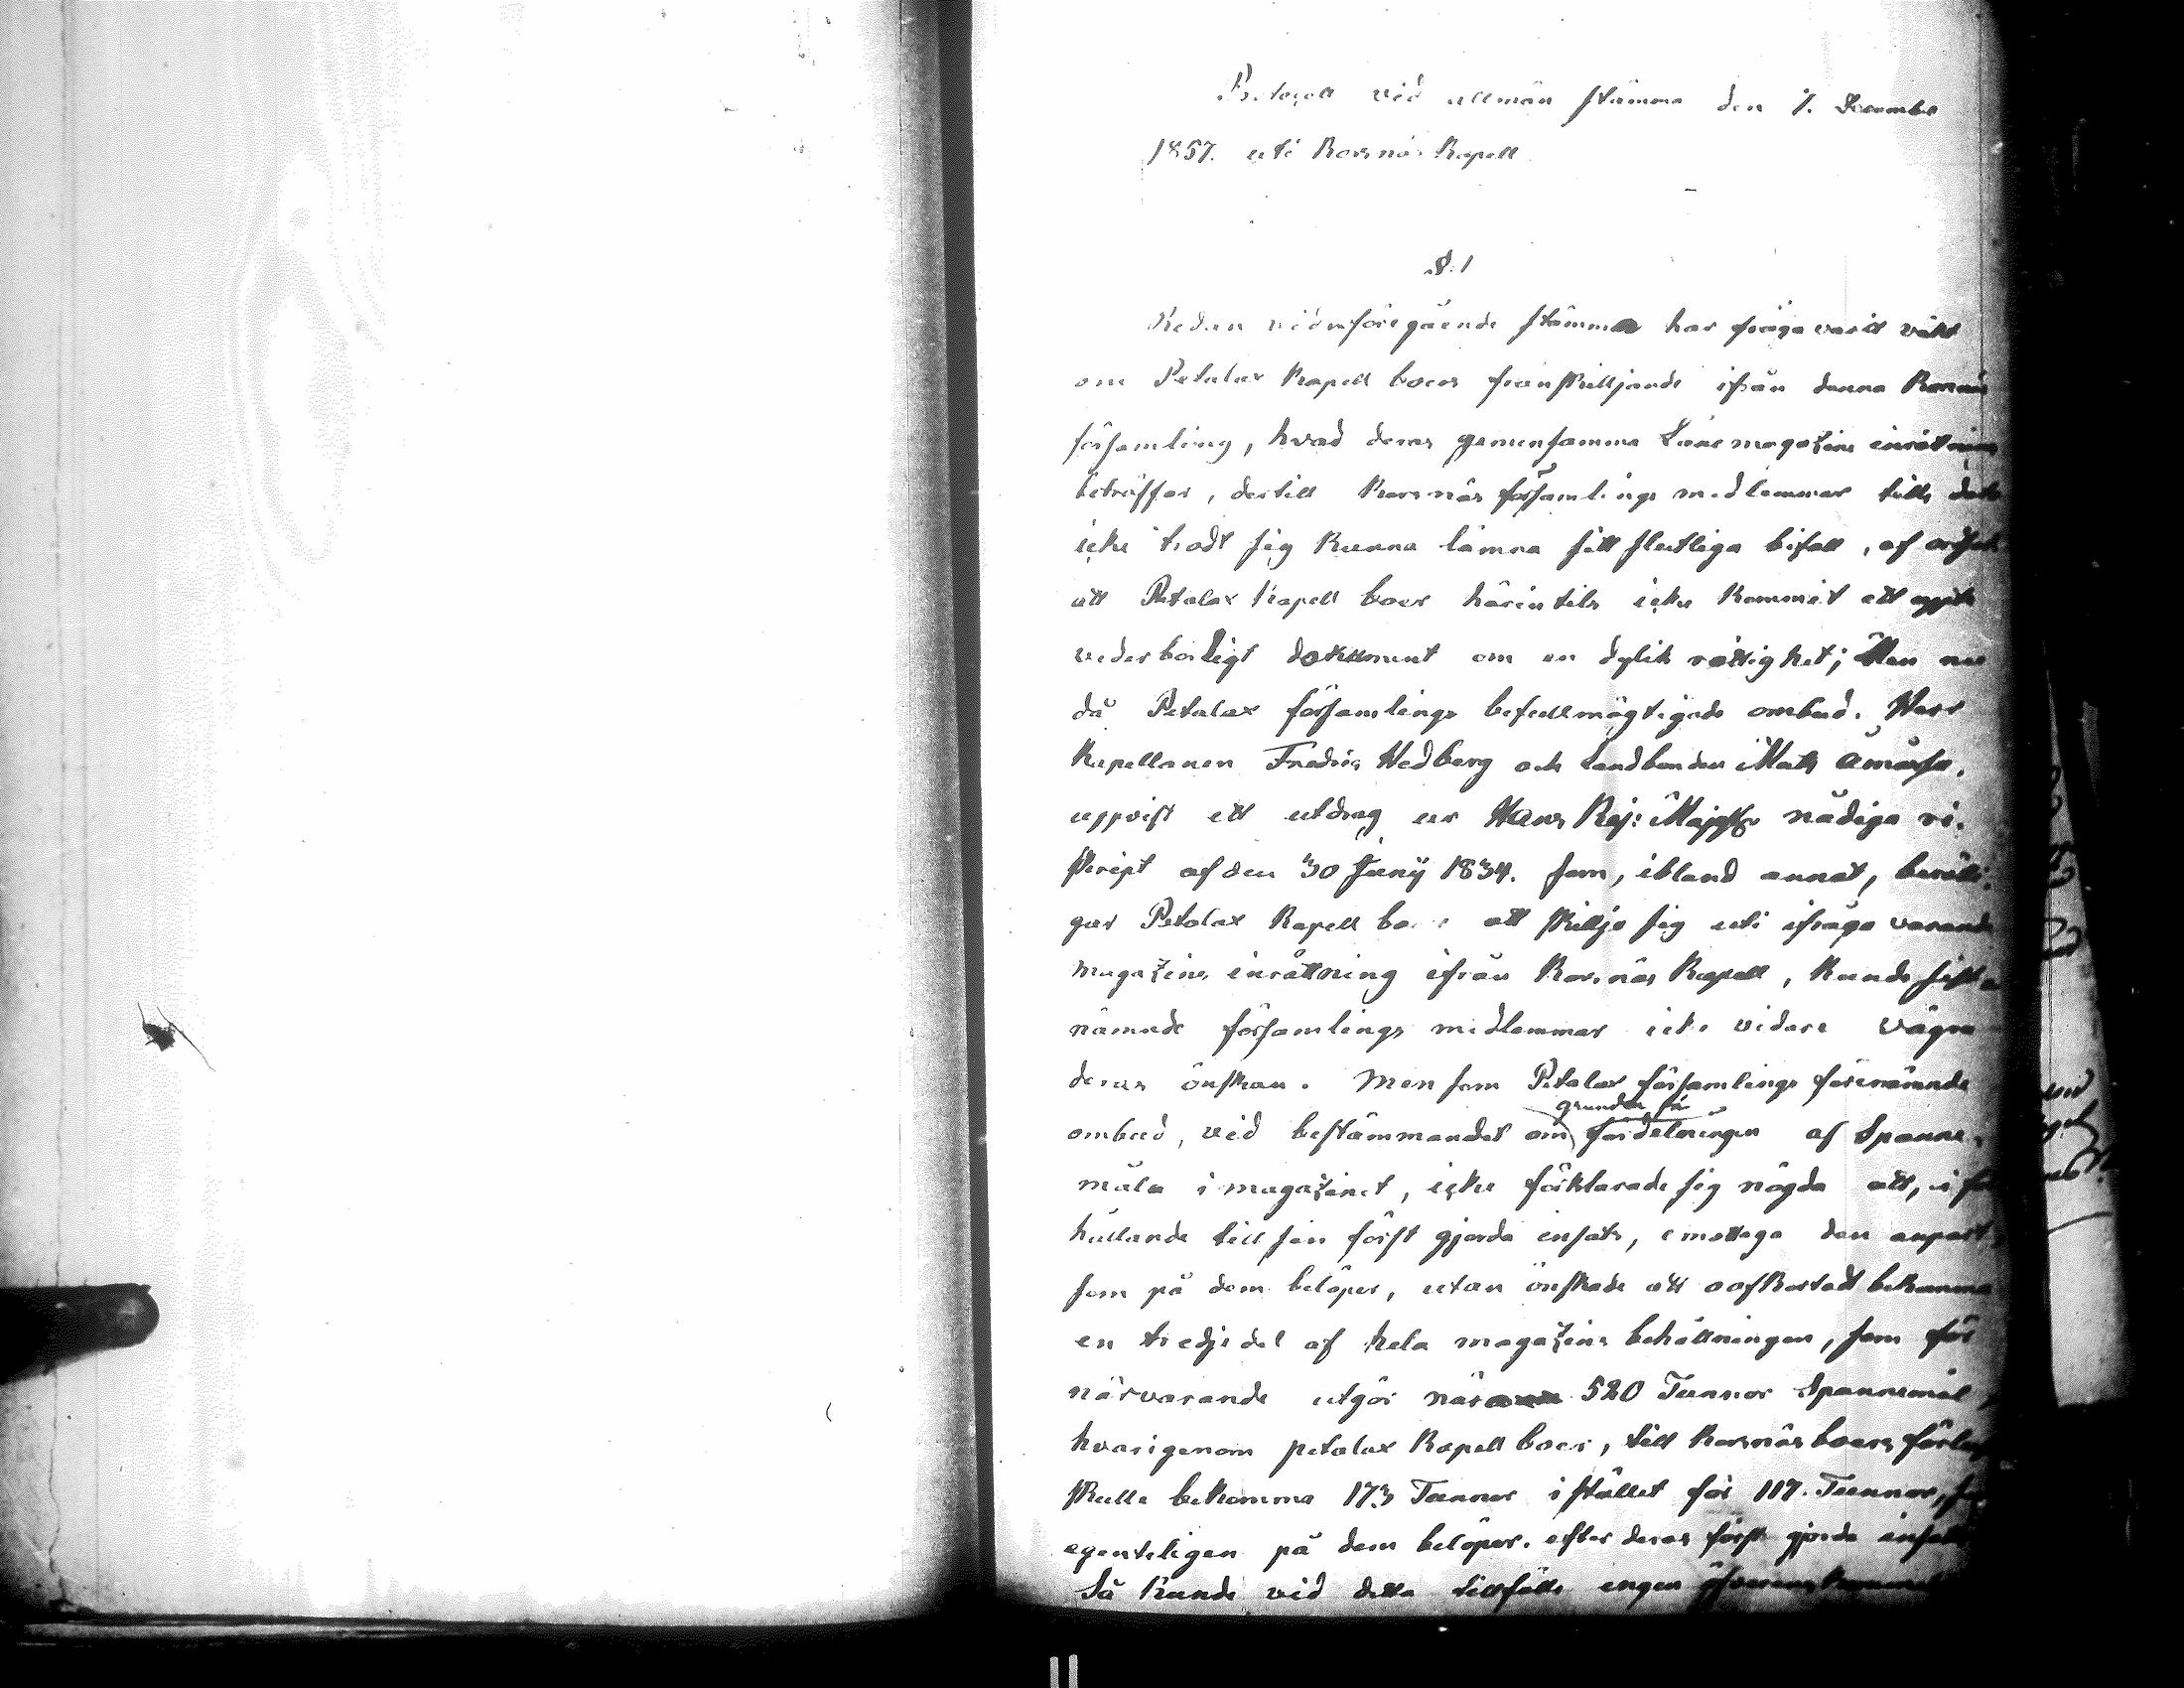 Protocoll vid allmän stämma den 7. December
1857. uti Korsnäs Kapell
§. 1
Redan vid föregående stämma har fråga varit väkt
om Petalax Kapell boers frånskilljande ifrån denna Korsnäs
församling, hvad deras gemensamma Låne magazins inrättning
beträffar, dertill Korsnäs församlings medlemmar tills dato
icke trodt sig kunna lämna sitt slutliga bifall, af orsak
att Petalax Kapell boer härintils icke kommit att uppte
vederbörligt dokument om en dylik rättighet; Men nu
då Petalax församlings befullmägtigade ombud. Herr
Kapellanen Fredric Hedberg och Landbonden Mats
uppvist ett utdrag ur Hans Kej: Majsts nådiga re-
skript af den 30 Junij 1834. som, ibland annat, bevilli-
gar Petalax Kapell boer att skillja sig uti ifråga varande
magazins inrättning ifrån Korsnäs Kapell, kunde sist
nämnde församlings medlemmar icke vidare vägra
deras önskan. Men som Petalax församlings förenämnde
grunden för
ombud, vid bestämmandet om fördelningen af Spanne-
måla i magazinet, icke förklarade sig nögda att, i för
hållande till sin först gjorda insats, emottaga den anpart
som på dem belöper, utan önskade att oafkortadt bekomma
en tredjedel af hela magazins behållningen, som för
närvarande utgör nära 520 Tunnor Spannemål,
hvarigenom petalax Kapell boer, till Korsnäs boers förlag
skulle bekomma 173 Tunnor i stället för 117. Tunnor, som
egenteligen på dem belöper. efter deras först gjorda insats
Så kunde vid detta tillfälle ingen öfverenskommelse